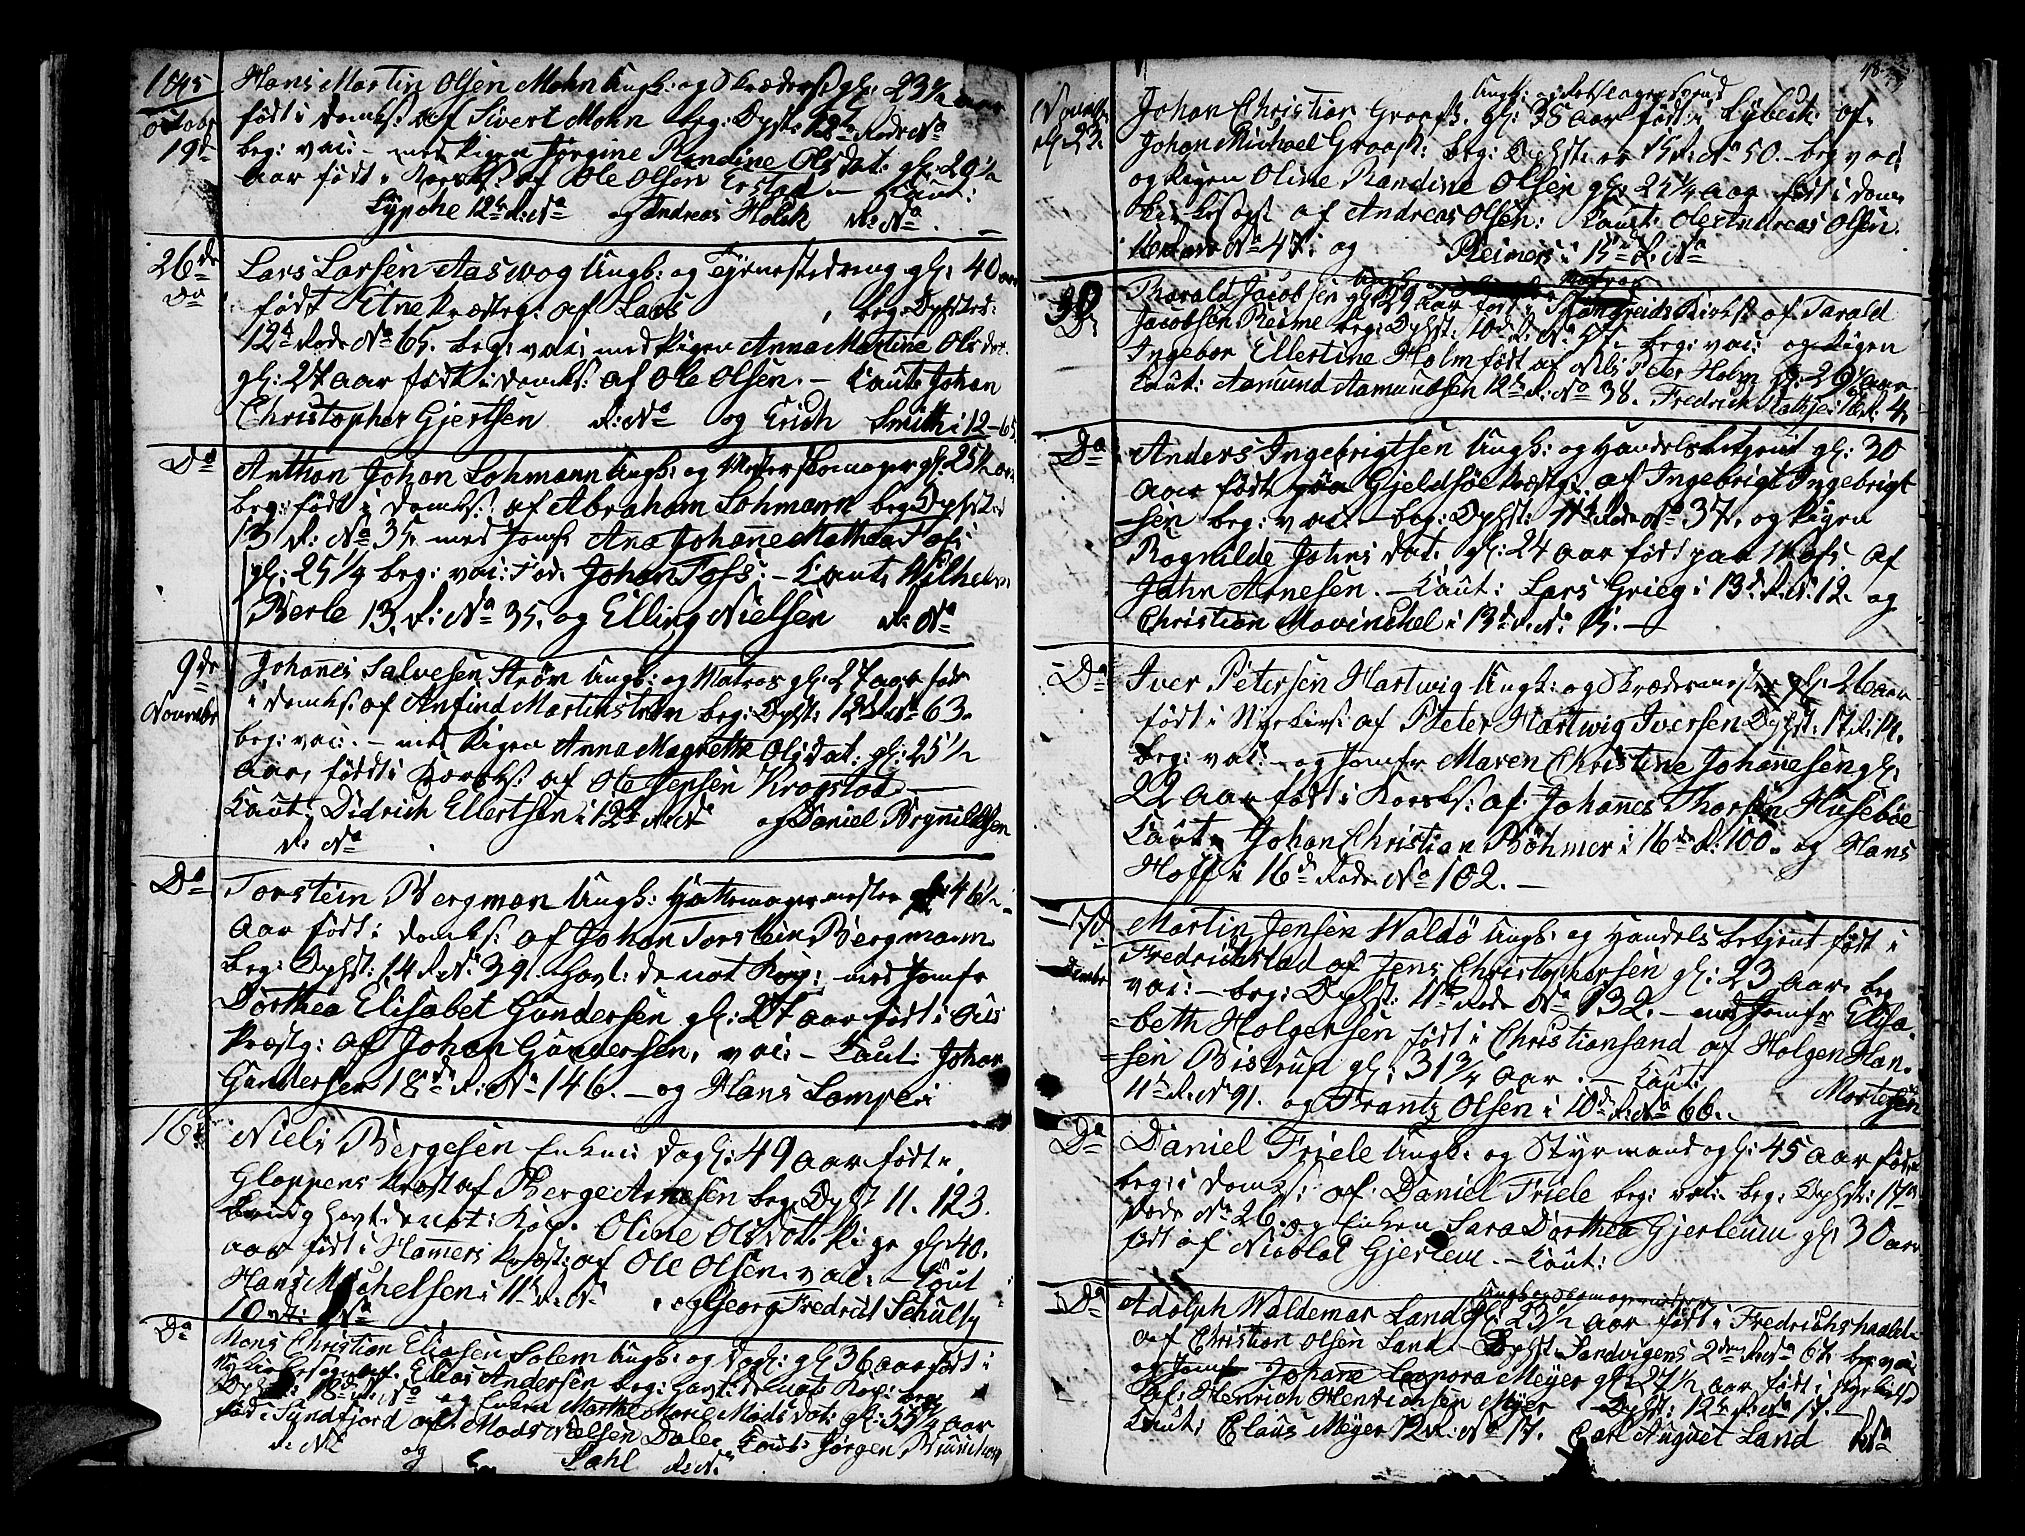 1845
October
19de
Hans Martin Olsen Mohn Ungk: og gl: 23 1/2 aar
født i Domks: af Sivert Mohn beg: Rode No
beg: vac: — med Pigen Jørgine Randine Olsdat: gl: 29 1/2
aar født i Korsks: af Ole Olsen — Caut:
Lypche 12te R: No og Andreas Holck R: No
26de
Do
Lars Larsen Aaswog Ungk: og gl: 40 aar
født Etne Præsteg: af Lars , beg: Ophst:
12te Rode No 65. beg: vac: med Pigen Anna Martine Olsdat.
gl: 27 aar født i Domks: af Ole Olsen. — Caut: Johan
Christopher Gjertsen R: No og Erich Smith i 12 — 65.
Do
Anthon Johan Lohmann Ungk: og gl: 25 1/2 aar
beg: født i Domks: af Abraham Lohmann beg: Ophst: i
13 R: No 35. med Jomf: Ane Johanne Mathea Foss
gl: 25 1/4 beg: vac: fød. Johan Foss: — Caut: Wilhelm
Berle 13. R: No 35. og Elling Nielsen R: No
9de
Novembr
Johanes Salvesen Strøm Ungk: og Matros gl: 27 aar født
i Domks: af Anfind Martin Strøm beg: Ophst: 12 R: No 63.
beg: vac: — med Pigen Anna Magrethe Olsdat: gl: 25 1/2
aar, født i Korsks: af Ole Jepsen Kragstad —
Caut: Didrich Ellertsen i 12te R: No og Daniel Brynildsen
R: No
Do
Torstein Bergman Ungk: Hattemagermester gl: 46 1/2
aar født i Domks: af Johan Torstein Bergmann
beg: Ophst: 14 R: No 391. havt: de nat: Kop: med Jomfr
Dorthea Elisabet Gundersen gl: 27 aar født i
Præstg: af Johan Gundersen, vac: — Caut: Johan
Gundersen 18de R: No 146. — og Hans Lampe i
16de
Niels Bergesen Enkem: Dagl: 49 aar født i
Gloppens Præst: af Berge Arnesen beg: Ophst 11. 123.
havt de nat: Kop. Oline Olsdatt: Pige gl: 40.
aar født i Hammers Præst: af Ole Olsen. vac: — Caut
Hans Michelsen i 11te R: No og Georg Fredrich Schultz
10 R: No
Do
Mons Christian Eliasen Solem Ungk: og Dagl: gl: 36 aar født i
Nykirkesogn af Elias Andersen beg: havt: de nat: Kop: beg:
Ophst: 18 R: No og Enken Marthe Marie Madsdat: gl: 55 1/4 aar
fød i Sundfjord af Mads Nielsen Dale, Caut: Jørgen
R: No og Dahl R: No
48
Novembr
d: 23.
Ungk: og
Johan Christian Graaf. gl: 38 aar født i Lybeck af
Johan Michael Graaf: beg: Ophst: R: No 50. — beg vac:
og Pigen Oline Randine Olsen gl: 25 1/4 aar født i Dom-
kirkesogn af Andreas Olsen: Caut: Ole Andreas Olsen
No 47: og Reimers i 15de R: No
30
Do
Tharald Jacobsen gl: 29 aar født i Kirks: af Tarald
Jacobsen Reime beg: Ophst: 10de R: No 57. — beg: vac: og Pigen
Ingebor Ellertine Holm født af Nils Peter Holm gl: 26 1/2 aar
Caut: Aamund Aamundsen 12te R: No 38. Fredrich
Do
Anders Ingebrigtsen Ungk: og Handelsbetjent gl: 30
aar født Gjeldsøe Præstg: af Ingebrigt Ingebrigt
-sen beg: vac: — beg: Ophst: 11te Rode No 37. og Pigen
Rognilde Johnsdat: gl: 24 aar født paa af
John Arnesen. — Caut: Lars Grieg i 13de R: N: 12. og
Christian Mowinchel i 13de R: No 15. —
Do
Iver Petersen Hartwig Ungk: og Skrædermester gl: 26 aar
født i Nyekirks: af Peter Hartwig Iversen Ophst: 17. R: 14.
beg: vac: — og Jomfr Maren Christine Johannesen gl:
22 aar født i Korsks: af Johannes Thorsen Husebøe
Caut: Johan Christian Böhmer i 16de R: 100. og Hans
Hoff i 16de Rode No 102. —
7de
Decembr
Martin Jensen Waldø Ungk: og Handelsbetjent født i
Fredrichstad af Jens Christophersen gl: 23 aar. beg
vac: — beg: Ophst: 11te Rode No 132. — med Jomfr Elisa-
=beth Holgersen født i Christiansand af Holgen Han-
=sen Bistrup gl: 31 3/4 aar. — Caut: Mortensen
11te R: No 91. og Frantz Olsen i 10de R: No 66.
Do
Daniel Friele Ungk: og Styrmand gl: 45 aar født
beg: i Domks: af Daniel Friele beg: vac: beg: Ophst: 17de
Rode No 26. og Enken Sara Dorthea Gjerleum gl: 30 aar
født af Nicolai Gjerlem. — Caut:
Do
Ungk: og Skomagermester
Adolph Waldemar Land gl: 23 1/2 aar født i Fredrichshald
af Christian Olsen Land — Ophst: Sandvigens 2den R: No 67. beg: vac:
og Jomf Johane Leonora Meyer gl: 27 1/2 aar født i
af: Henrich Henrichsen Meyer Ophst: 12te R: No 17. —
Caut: Claus Meyer 12 R: No 17. Carl August Land R: No